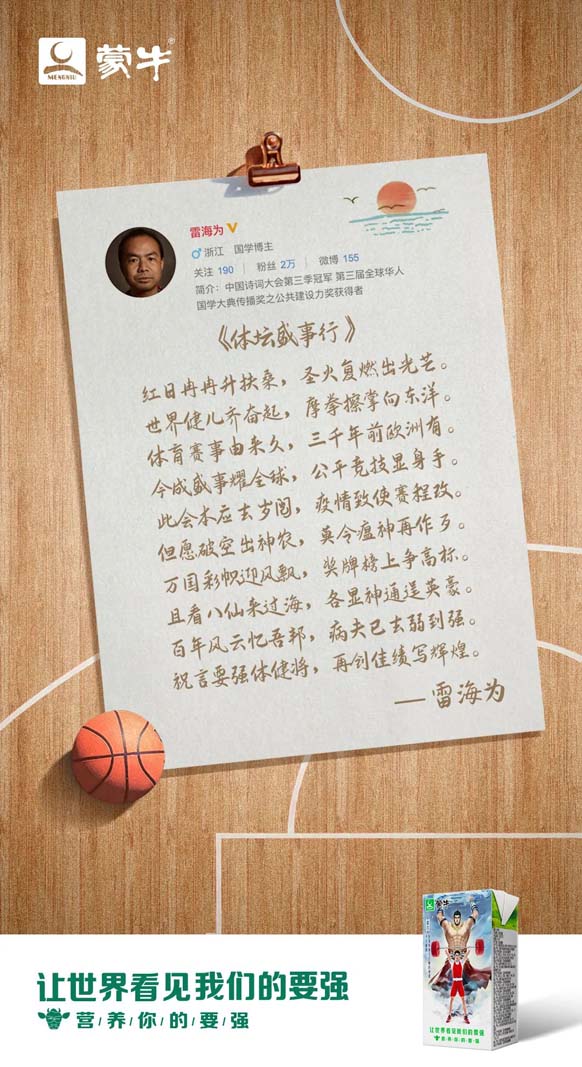 MENGNIU
蒙牛®
雷海为
浙江 国学博主
关注 190 | 粉丝 2万 | 微博 155
简介：中国诗词大会第三季冠军 第三届全球华人
国学大典传播奖之公共建设力奖获得者
《体坛盛事行》
红日冉冉升扶桑，圣火复燃出光芒。
世界健儿齐奋起，摩拳擦掌向东洋。
体育赛事由来久，三千年前欧洲有。
今成盛事耀全球，公平竞技显身手。
此会本应去岁阅，疫情致使赛程改。
但愿破空出神农，莫令瘟神再作歹。
万国彩帜迎风飘，奖牌榜上争高标。
且看八仙来过海，各显神通逞英豪。
百年风云忆吾邦，病夫已去弱到强。
祝言要强体健将，再创佳绩写辉煌。
——雷海为
蒙牛
让世界看见我们的要强
营养你的要强
让世界看见我们的要强
营/养/你/的/要/强